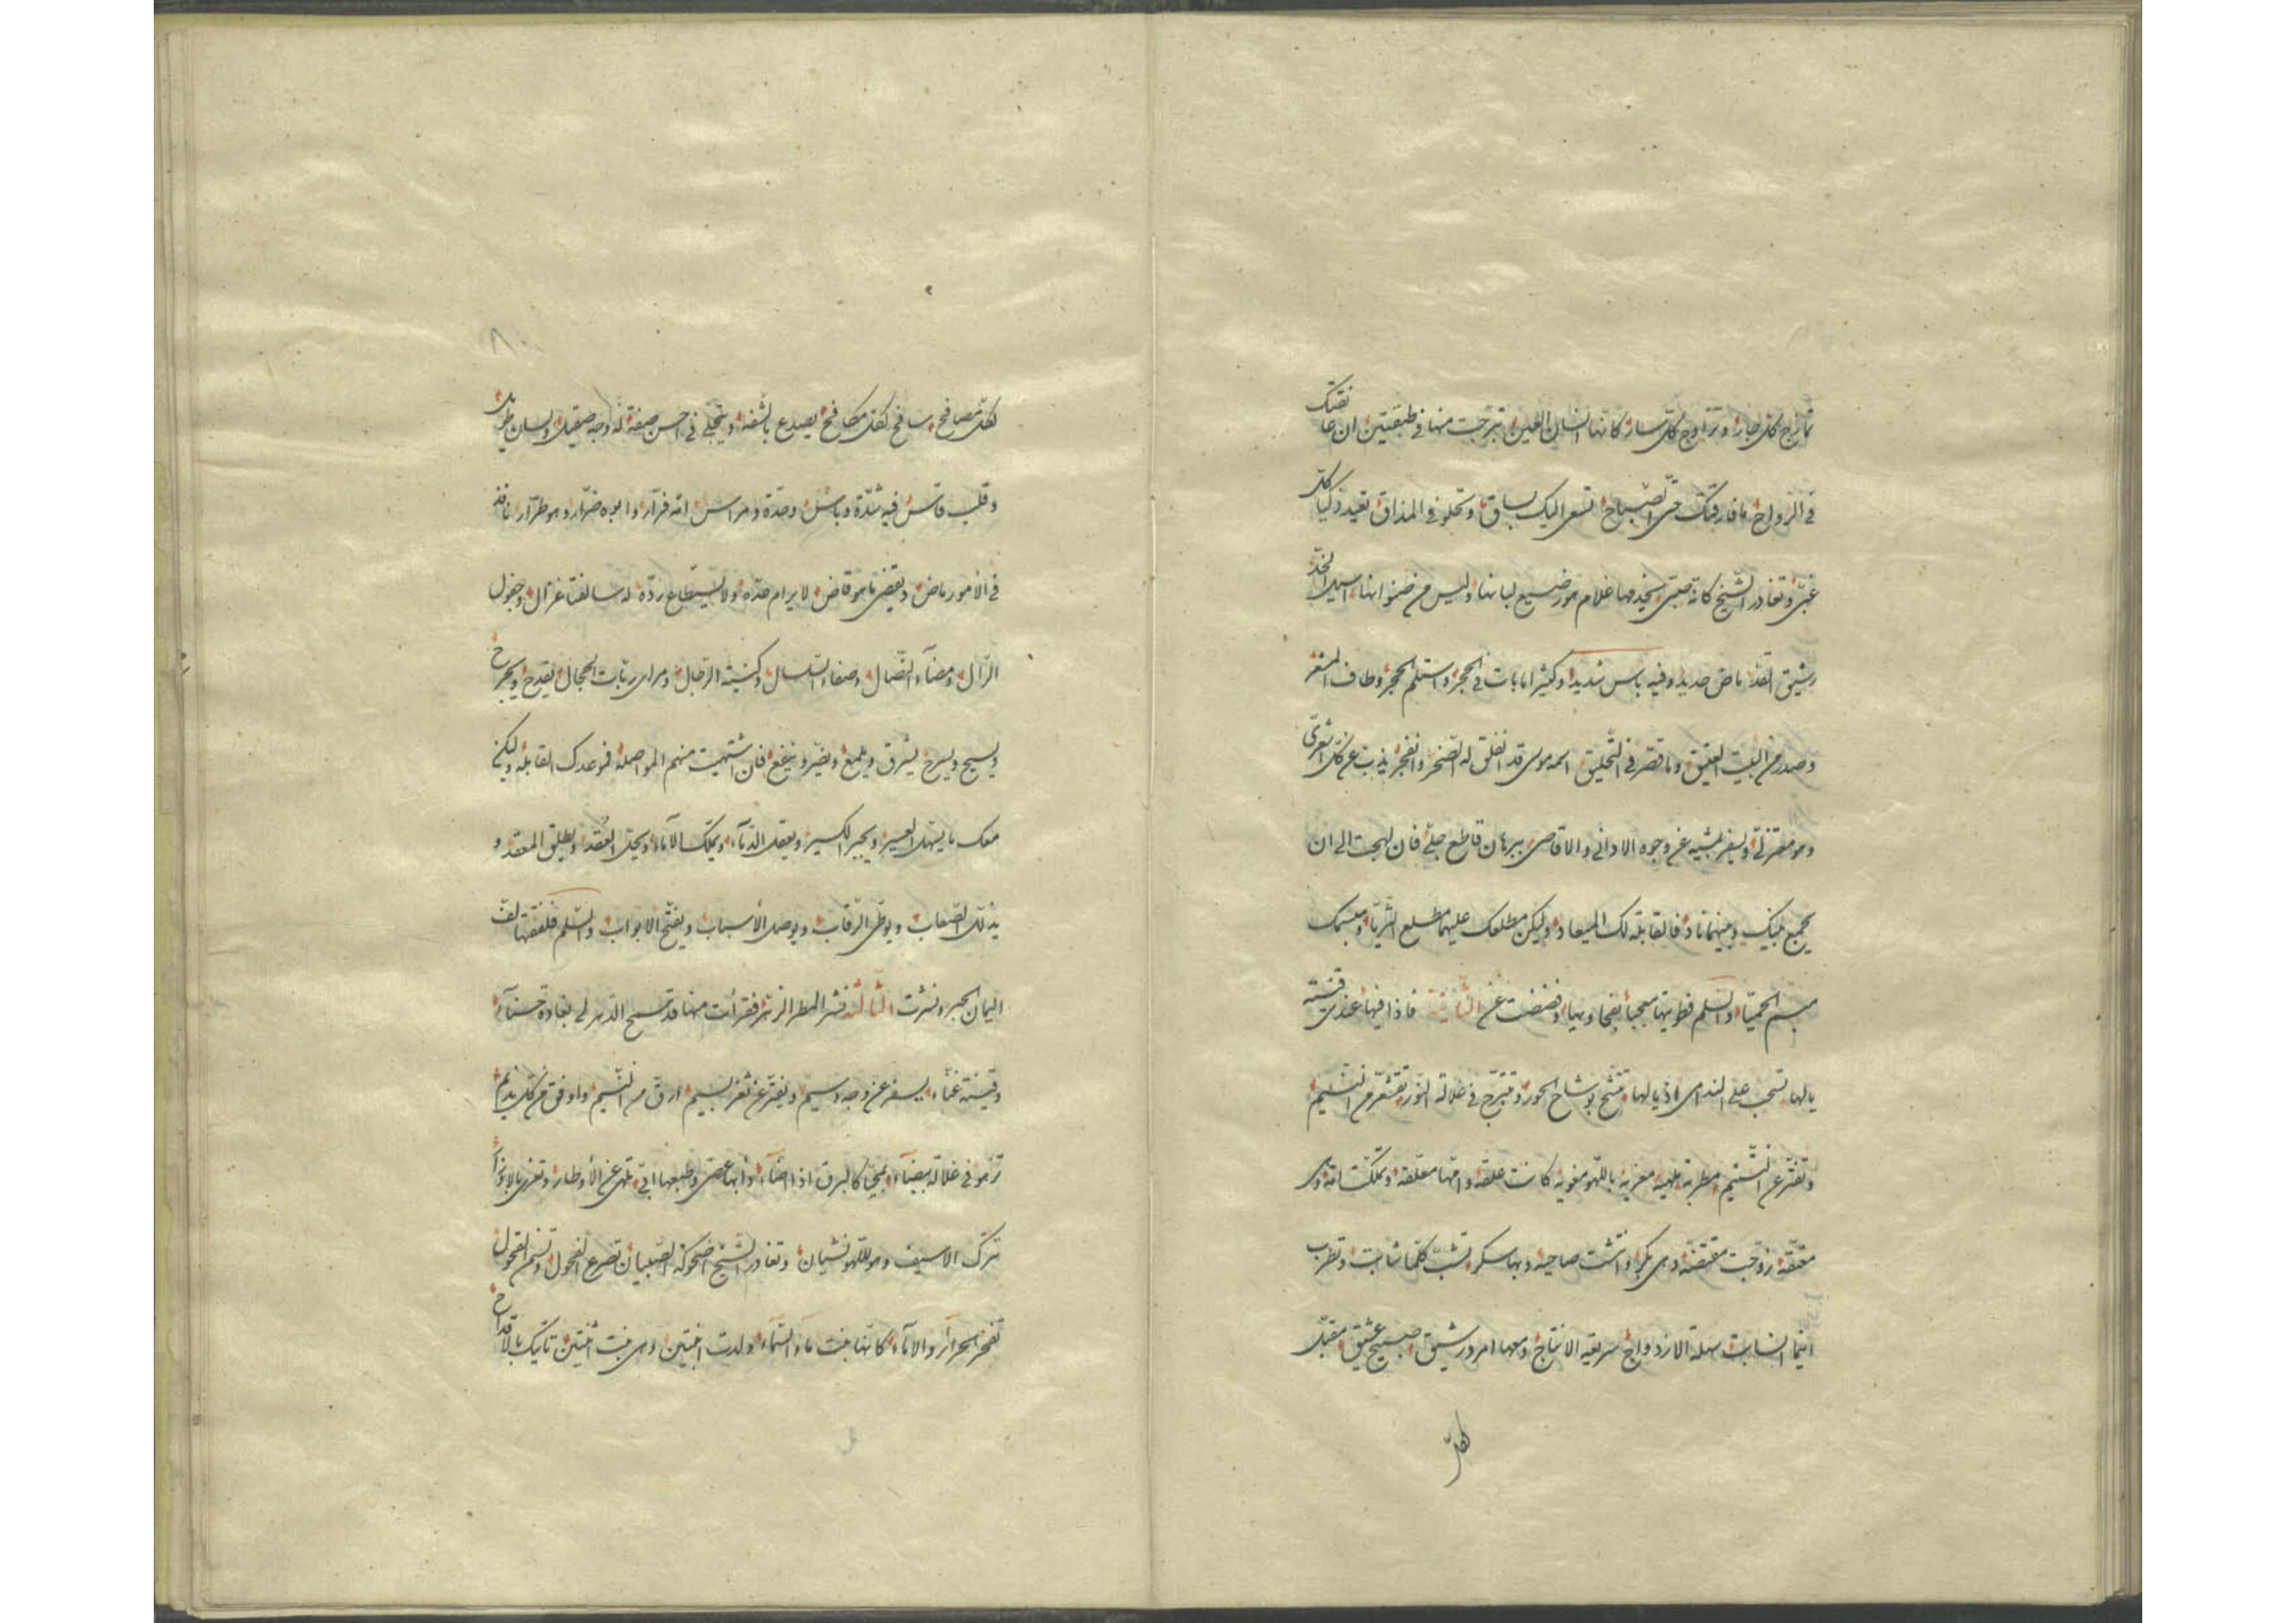 تمازج كل جار وتزاوج كل سار كانها انسان العين تبرجت منها في طبقتين ان عانقتك
في الرواح ما فارقتك حتى الصباح تسعى اليك بساق وتحلو في المذاق تعيد ذكيا كل
غبي وتغادر الشيخ كانه صبي يخدمها غلام هو رضيع لبانها وليس من اسيل الخد
رشيق القد ماض حديد وفيه باس شديد وكثيرا ما بات في الحجر واستلم الحجر وطاف المشعر
وصدر من البيت العتيق وما قصر في التحليق اسمه موسى قد انفلق له الصخر وانفجر يذب عن كل اشعري
وهو معتزلي ويسفر عن وجوه الاداني والاقاصي ببرهان قاطع جلي فان لهجت الى ان
يجمع بينك وبينهما ناد فالقابلة لك الميعاد وليكن مطلعك عليهما مطلع الثريا ومبسمك
مبسم الحميا والسلم فطويتها معجبا بفحاويها وفضضت عن الثانية فاذا فيها عندي قينة
يالها تسحب على الندامى اذيالها تتشح بوشاح الحور وتتبرج في غلالة النور تقشعر من النسيم
وتفتر عن مطربة ملهية مغرية باللهو مغوية كانت علقة وامها معلقة وتملكت امة وهي
معتقة زوجت مفتضة وهي بكر وانتشت صاحية وبها سكر تشب كلما شابت وتطرب
اينما انسابت سهلة الازدواج سريعة الانتاج ومعها امرد رشيق صبيح عشيق مقبل
لكل
لكل مصافح سافح لكل مكافح يصدع بالشفة ويتجلى في احسن صفة له وجه صقيل ولسان طويل
وقلب قاس فيه شدة وباس وحدة ومراس امه فرار وابوه ضرار وهو طرار نافذ
في الامور ماض ويقضي ما هو قاض لا يرام حده ولا يستطاع رده له سالفتا غزال وجفول
الرال ومضاء النصال وصفاء السلسال وكنية الرجال ومراى ربات الحجال يقدح ويجرح
ويسيح ويسرح يشرق ويلمع ويضر وينفع فان اشتهيت منهم المواصلة فموعدك القابلة وليكن
معك ما يسهل العسير ويجبر الكسير ويعقل الدماء ويملك الاماء ويحل العقد ويطلق المعقد و
يذلل الصعاب ويوطي الرقاب ويوصل الأسباب ويفتح الابواب والسلم فلففتها لف
اليمان الحبر ونشرت الثالثة نشر المطر الزهر فقرأت منها قد سمح الدهر لي بغادة حسناء
وقينة غناء يسفر عن وجه وسيم ويفتر عن ثغر بسيم ارق من النسيم واوفق من كل نديم
تزهو في غلالة بيضاء بمحيا كالبرق اذا اضاء وأبها عصي وطبعها ابي تلهي عن الأوطار وتغري بالاوزار
تترك الاسيف وهو للهو نشيان وتغادر الشيخ اضحوكة الصبيان تصرع الفحول وتسنم القحول
تفخر الحرائر والاماء كانها بنت ماء السماء ولدت ابنتين وهي بنت اثنتين تاتيك بالاقداح